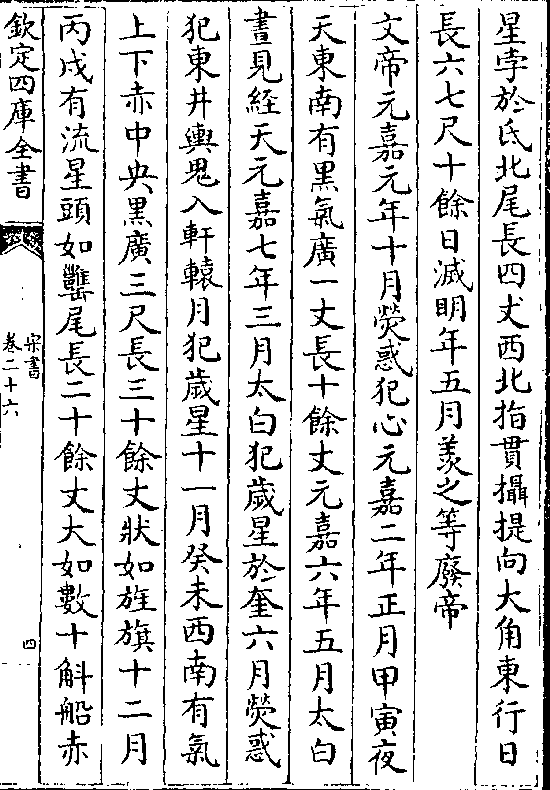 星孛於氐北尾長四丈西北指貫攝提向大角東行日
長六七尺十餘日滅明年五月羨之等廢帝
文帝元嘉元年十月熒惑犯心元嘉二年正月甲寅夜
天東南有黑氣廣一丈長十餘丈元嘉六年五月太白
晝見經天元嘉七年三月太白犯歲星於奎六月熒惑
犯東井輿鬼入軒轅月犯歲星十一月癸未西南有氣
上下赤中央黑廣三尺長三十餘丈狀如旌旗十二月
丙戌有流星頭如甕尾長二十餘丈大如數十斛船赤
欽定四庫全書
宋書
卷二十六
四